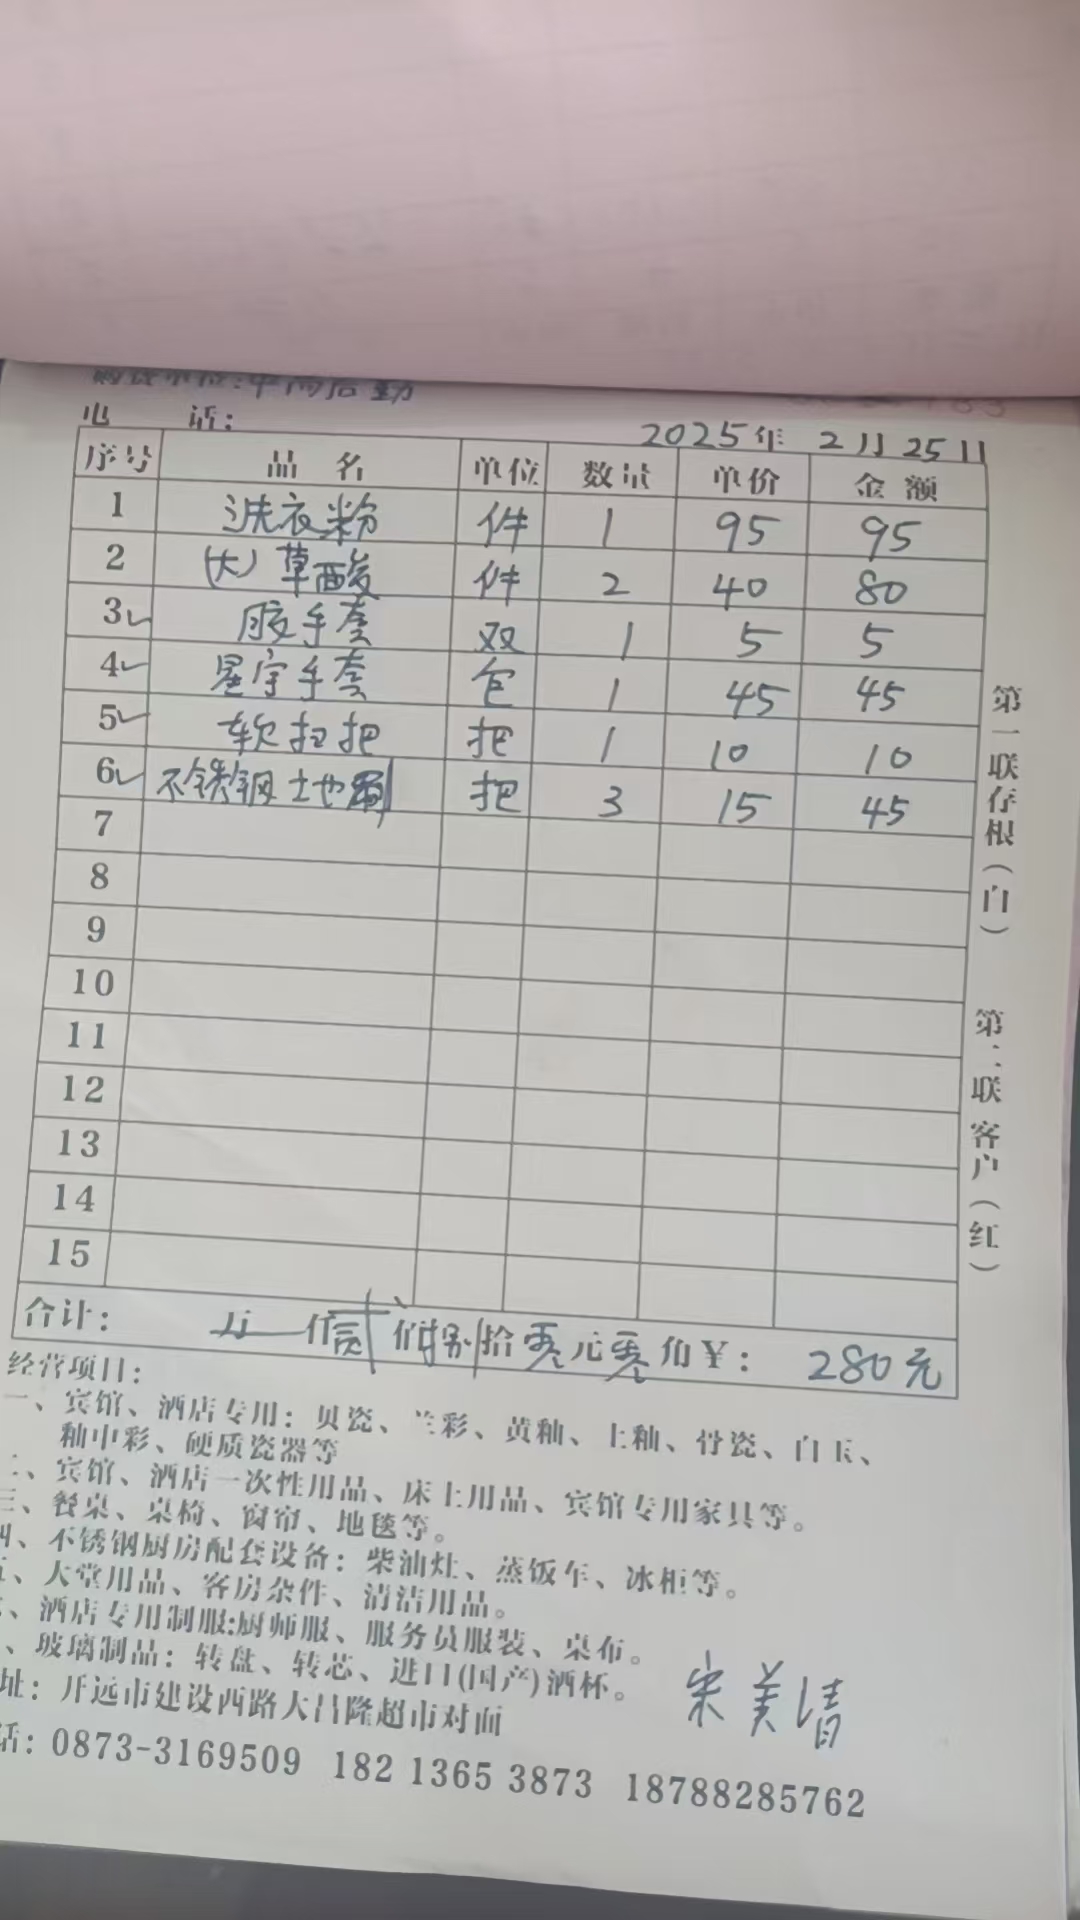 购货单位:中心后勤
电 话: 2025年 2月25日
序号 品名 单位 数量 单价 金额
1 洗衣粉 件 1 95 95
2 (大)草酸 件 2 40 80
3 胶手套 双 1 5 5
4 星宇手套 包 1 45 45
5 软扫把 把 1 10 10
6 不锈钢土地刷 把 3 15 45
7
8
9
10
11
12
13
14
15
合计: 万 仟贰佰捌拾零元零角¥: 280元
第一联存根(白) 第二联客户(红)
经营项目:
一、宾馆、酒店专用: 贝瓷、兰彩、黄釉、土釉、骨瓷、白玉、
釉中彩、硬质瓷器等
二、宾馆、酒店一次性用品、床上用品、宾馆专用家具等。
三、餐桌、桌椅、窗帘、地毯等。
四、不锈钢厨房配套设备: 柴油灶、蒸饭车、冰柜等。
五、大堂用品、客房杂件、清洁用品。
、酒店专用制服:厨师服、服务员服装、桌布。
、玻璃制品: 转盘、转芯、进口(国产)酒杯。
址: 开远市建设西路大昌隆超市对面
宋美清
话: 0873-3169509 182 1365 3873 18788285762